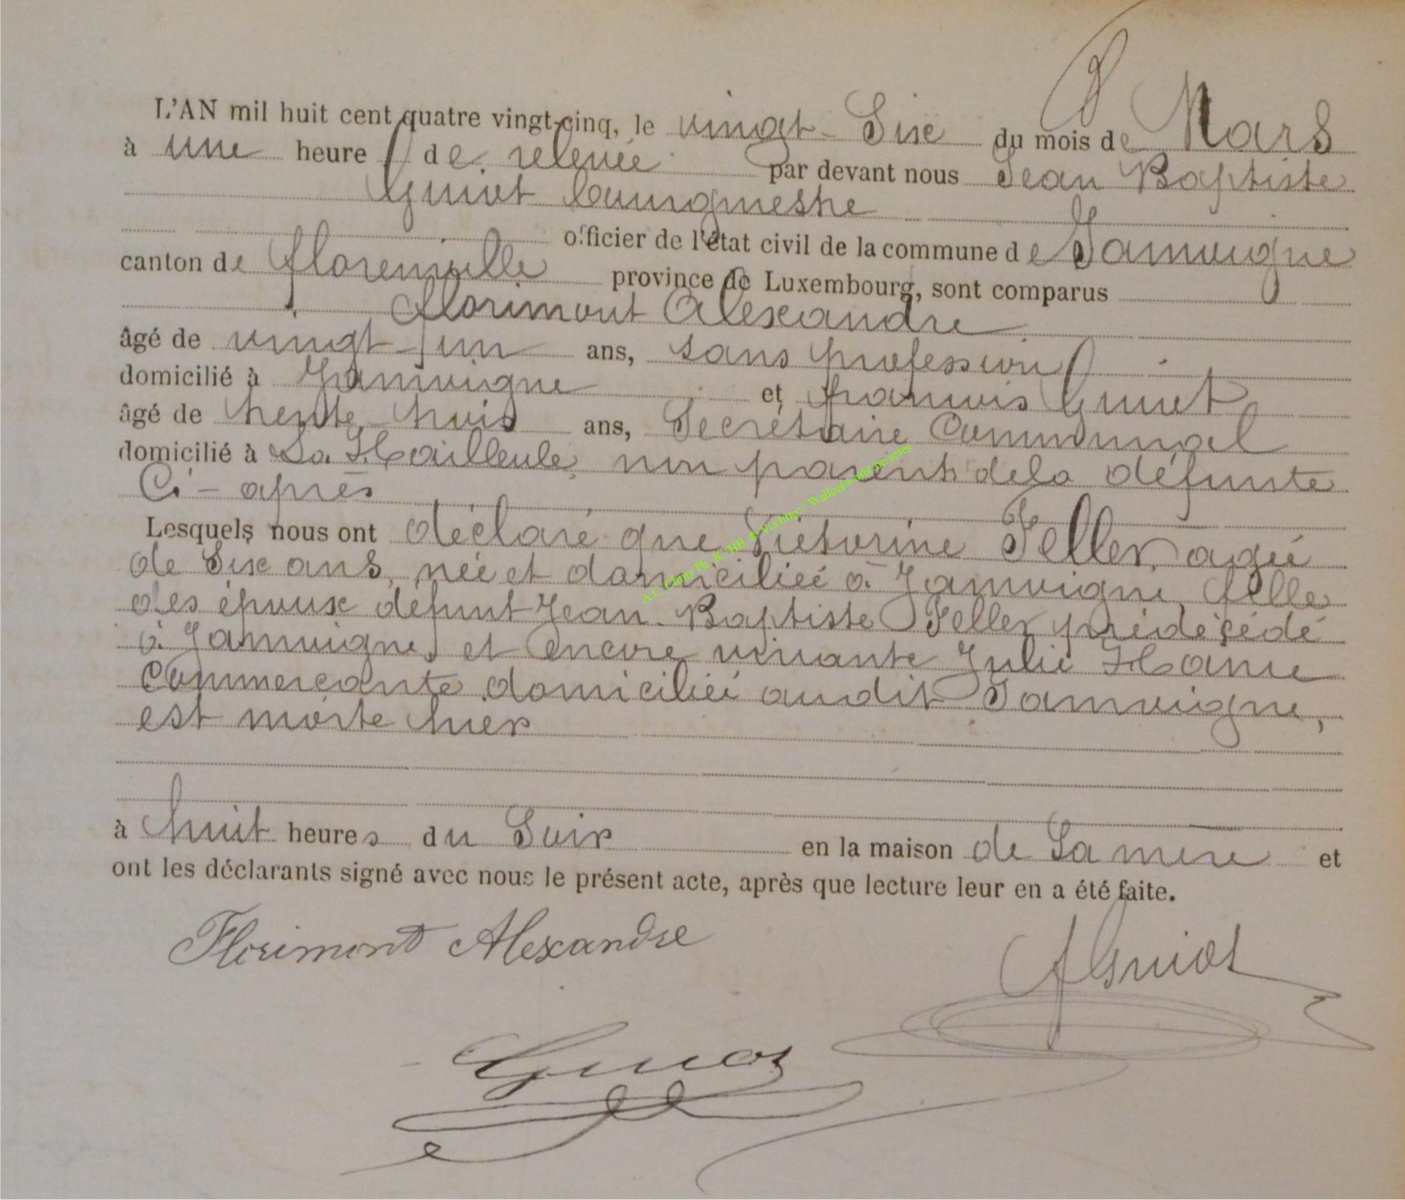 L'AN mil huit cent quatre vingt-cinq, le vingt-Six du mois de Mars
à une heure de relevée par devant nous Jean Baptiste
Guiot bourgmestre
officier de l'état civil de la commune de Jamoigne
canton de Florenville province de Luxembourg, sont comparus
Florimont Alexandre
âgé de vingt-un ans, sans profession
domicilié à Jamoigne et françois Guiot
âgé de trente-huit ans, Secrétaire Communal
domicilié à La Hailleule, non parents de la défunte
Ci-après
Lesquels nous ont déclaré que Victorine Feller, agée
de Six ans, née et domiciliée à Jamoigne, fille
des époux défunt Jean-Baptiste Feller prédécédé
à Jamoigne, et encore vivante Julie
Commerçante domiciliée audit Jamoigne,
est morte hier
à huit heures du Soir en la maison de Sa mère et
ont les déclarants signé avec nous le présent acte, après que lecture leur en a été faite.
Florimont Alexandre
F Guiot
Guiot